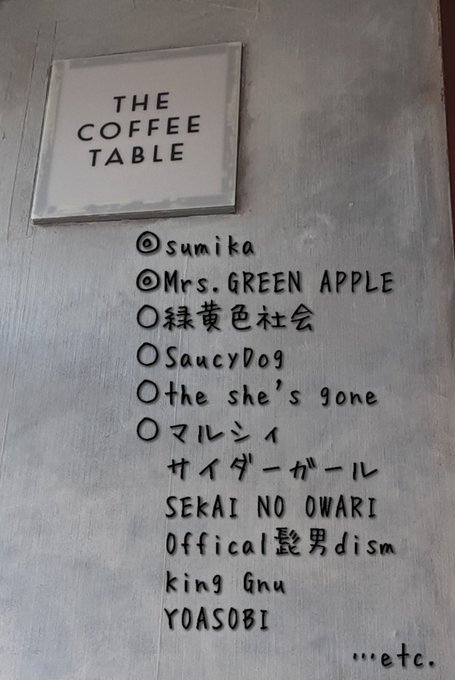 THE
COFFEE
TABLE
◎sumika
◎Mrs.GREEN APPLE
○緑黄色社会
○SaucyDog
○the she's gone
○マルシィ
サイダーガール
SEKAI NO OWARI
Offical髭男dism
king Gnu
YOASOBI
…etc.